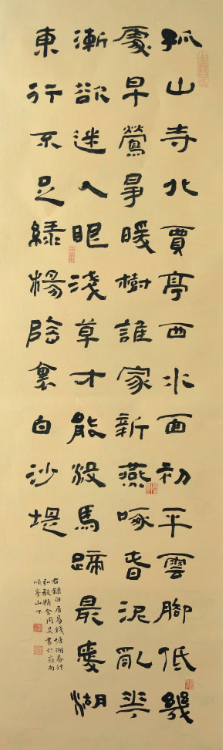 孤山寺北賈亭西水面初平雲腳低幾
處早鶯爭暖樹誰家新燕啄春泥亂華
漸欲迷人眼淺草才能沒馬蹄最愛湖
東行不足綠楊陰裏白沙堤
右錄白居易錢塘湖春行